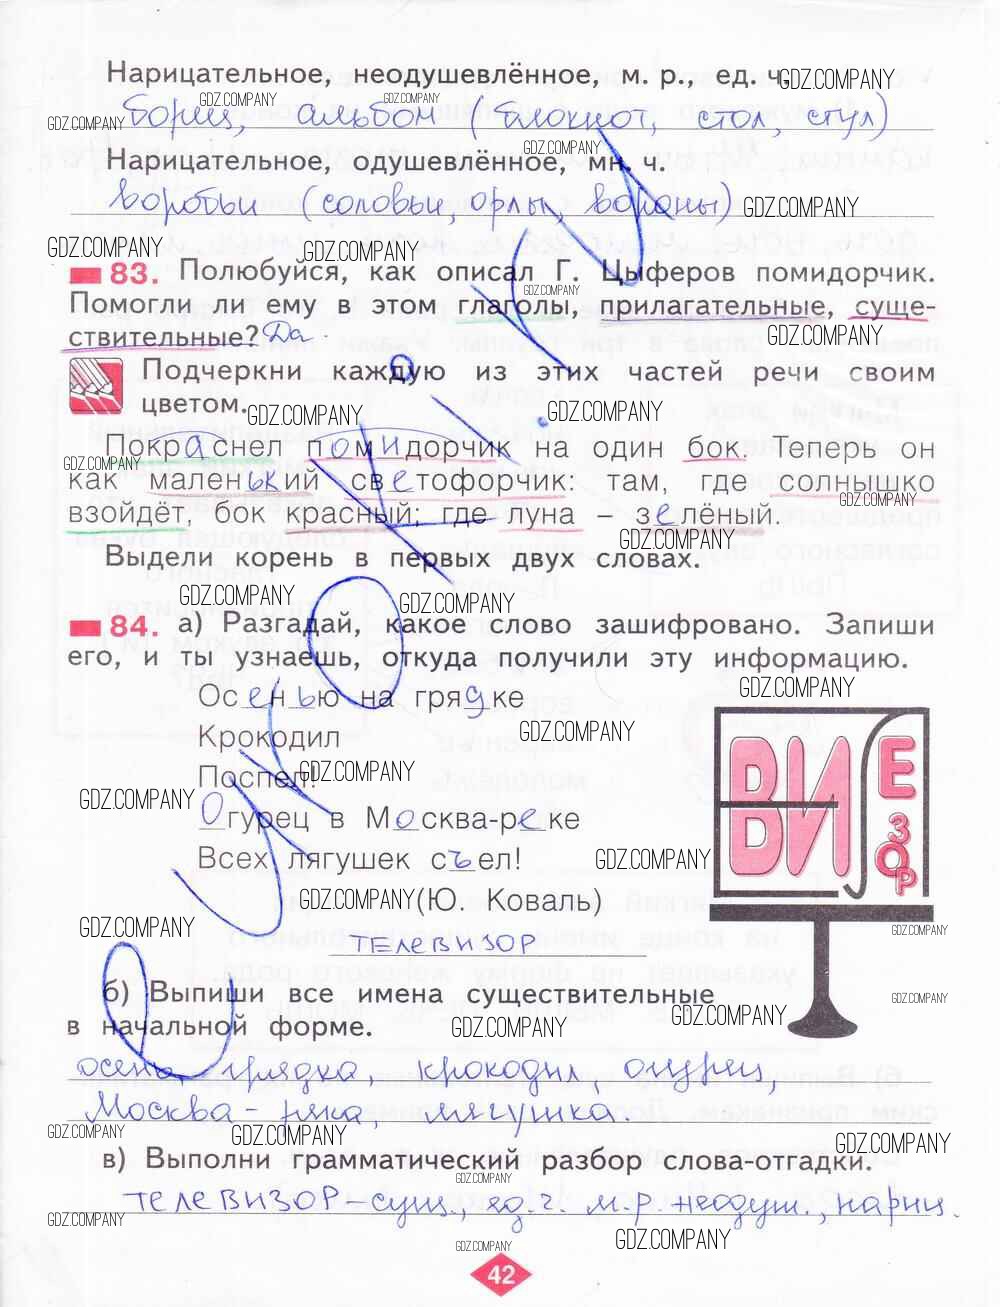 Нарицательное, неодушевлённое, м. р., ед. ч.
борщ, альбом (блокнот, стол, стул)
Нарицательное, одушевлённое, мн. ч.
воробьи (соловьи, орлы, вороны)
83. Полюбуйся, как описал Г. Цыферов помидорчик.
Помогли ли ему в этом глаголы, прилагательные, суще-
ствительные? Да
Подчеркни каждую из этих частей речи своим
цветом.
Покраснел помидорчик на один бок. Теперь он
как маленький светофорчик: там, где солнышко
взойдёт, бок красный; где луна – зелёный.
Выдели корень в первых двух словах.
84. а) Разгадай, какое слово зашифровано. Запиши
его, и ты узнаешь, откуда получили эту информацию.
Осенью на грядке
Крокодил
Поспел!
Огурец в Москва-реке
Всех лягушек съел!
(Ю. Коваль)
ВИ
ВИ
Е
ЗОР
ТЕЛЕВИЗОР
б) Выпиши все имена существительные
в начальной форме.
осень, грядка, крокодил, огурец,
Москва-река, лягушка.
в) Выполни грамматический разбор слова-отгадки.
ТЕЛЕВИЗОР – сущ., ед.ч. м.р. неодуш., нариц.
42
GDZ.COMPANY